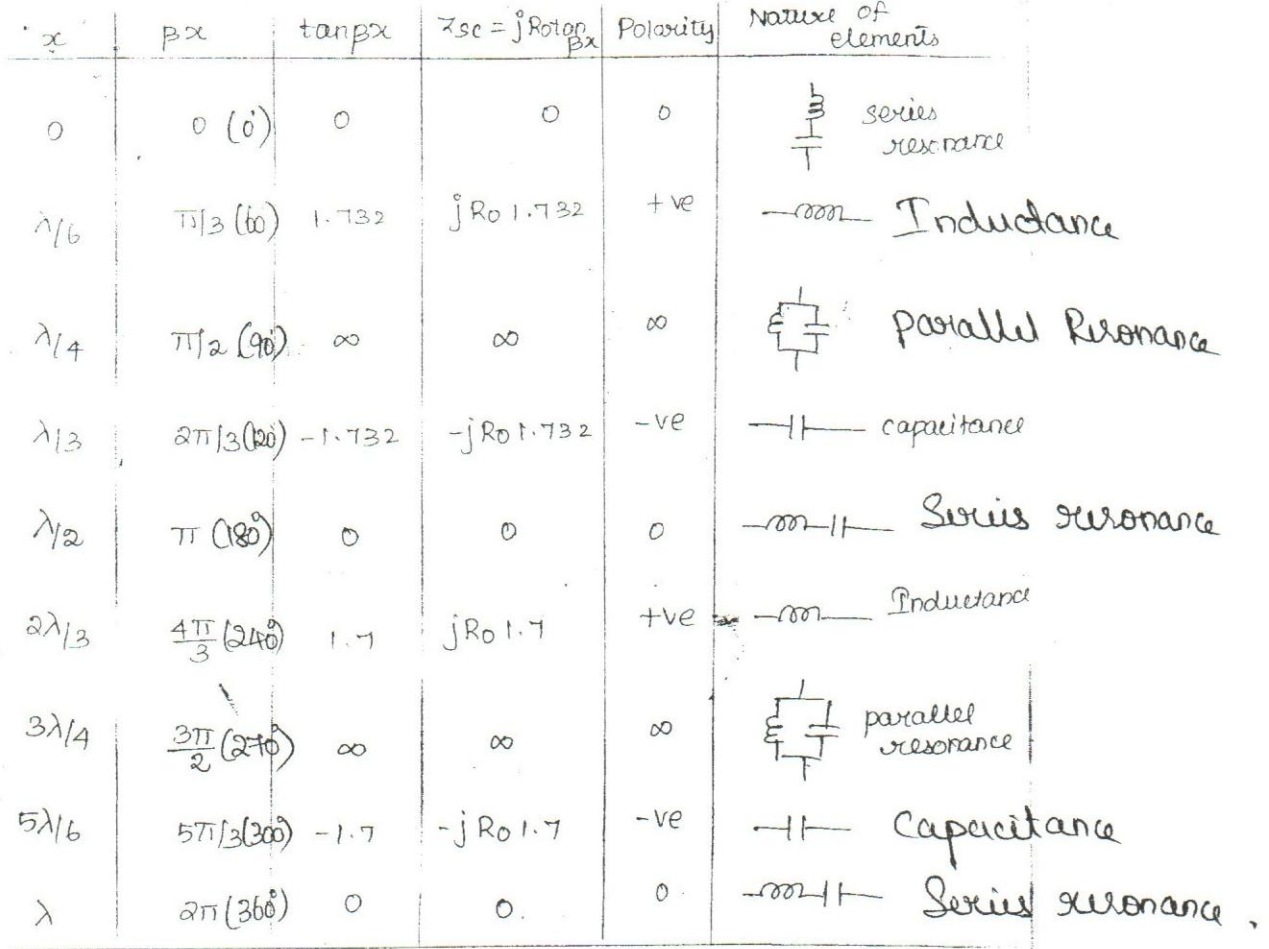 x βx tanβx Zsc = jRotanβx Polarity Nature of elements
0 0 (0°) 0 0 0 series resonance
λ/6 π/3 (60) 1.732 jRo 1.732 +ve Inductance
λ/4 π/2 (90°) ∞ ∞ ∞ parallel Resonance
λ/3 2π/3(120°) -1.732 -jRo 1.732 -ve capacitance
λ/2 π (180°) 0 0 0 Series resonance
2λ/3 4π/3 (240°) 1.7 jRo 1.7 +ve Inductance
3λ/4 3π/2 (270°) ∞ ∞ ∞ parallel resonance
5λ/6 5π/3(300°) -1.7 -jRo 1.7 -ve Capacitance
λ 2π (360°) 0 0. 0. Series resonance.